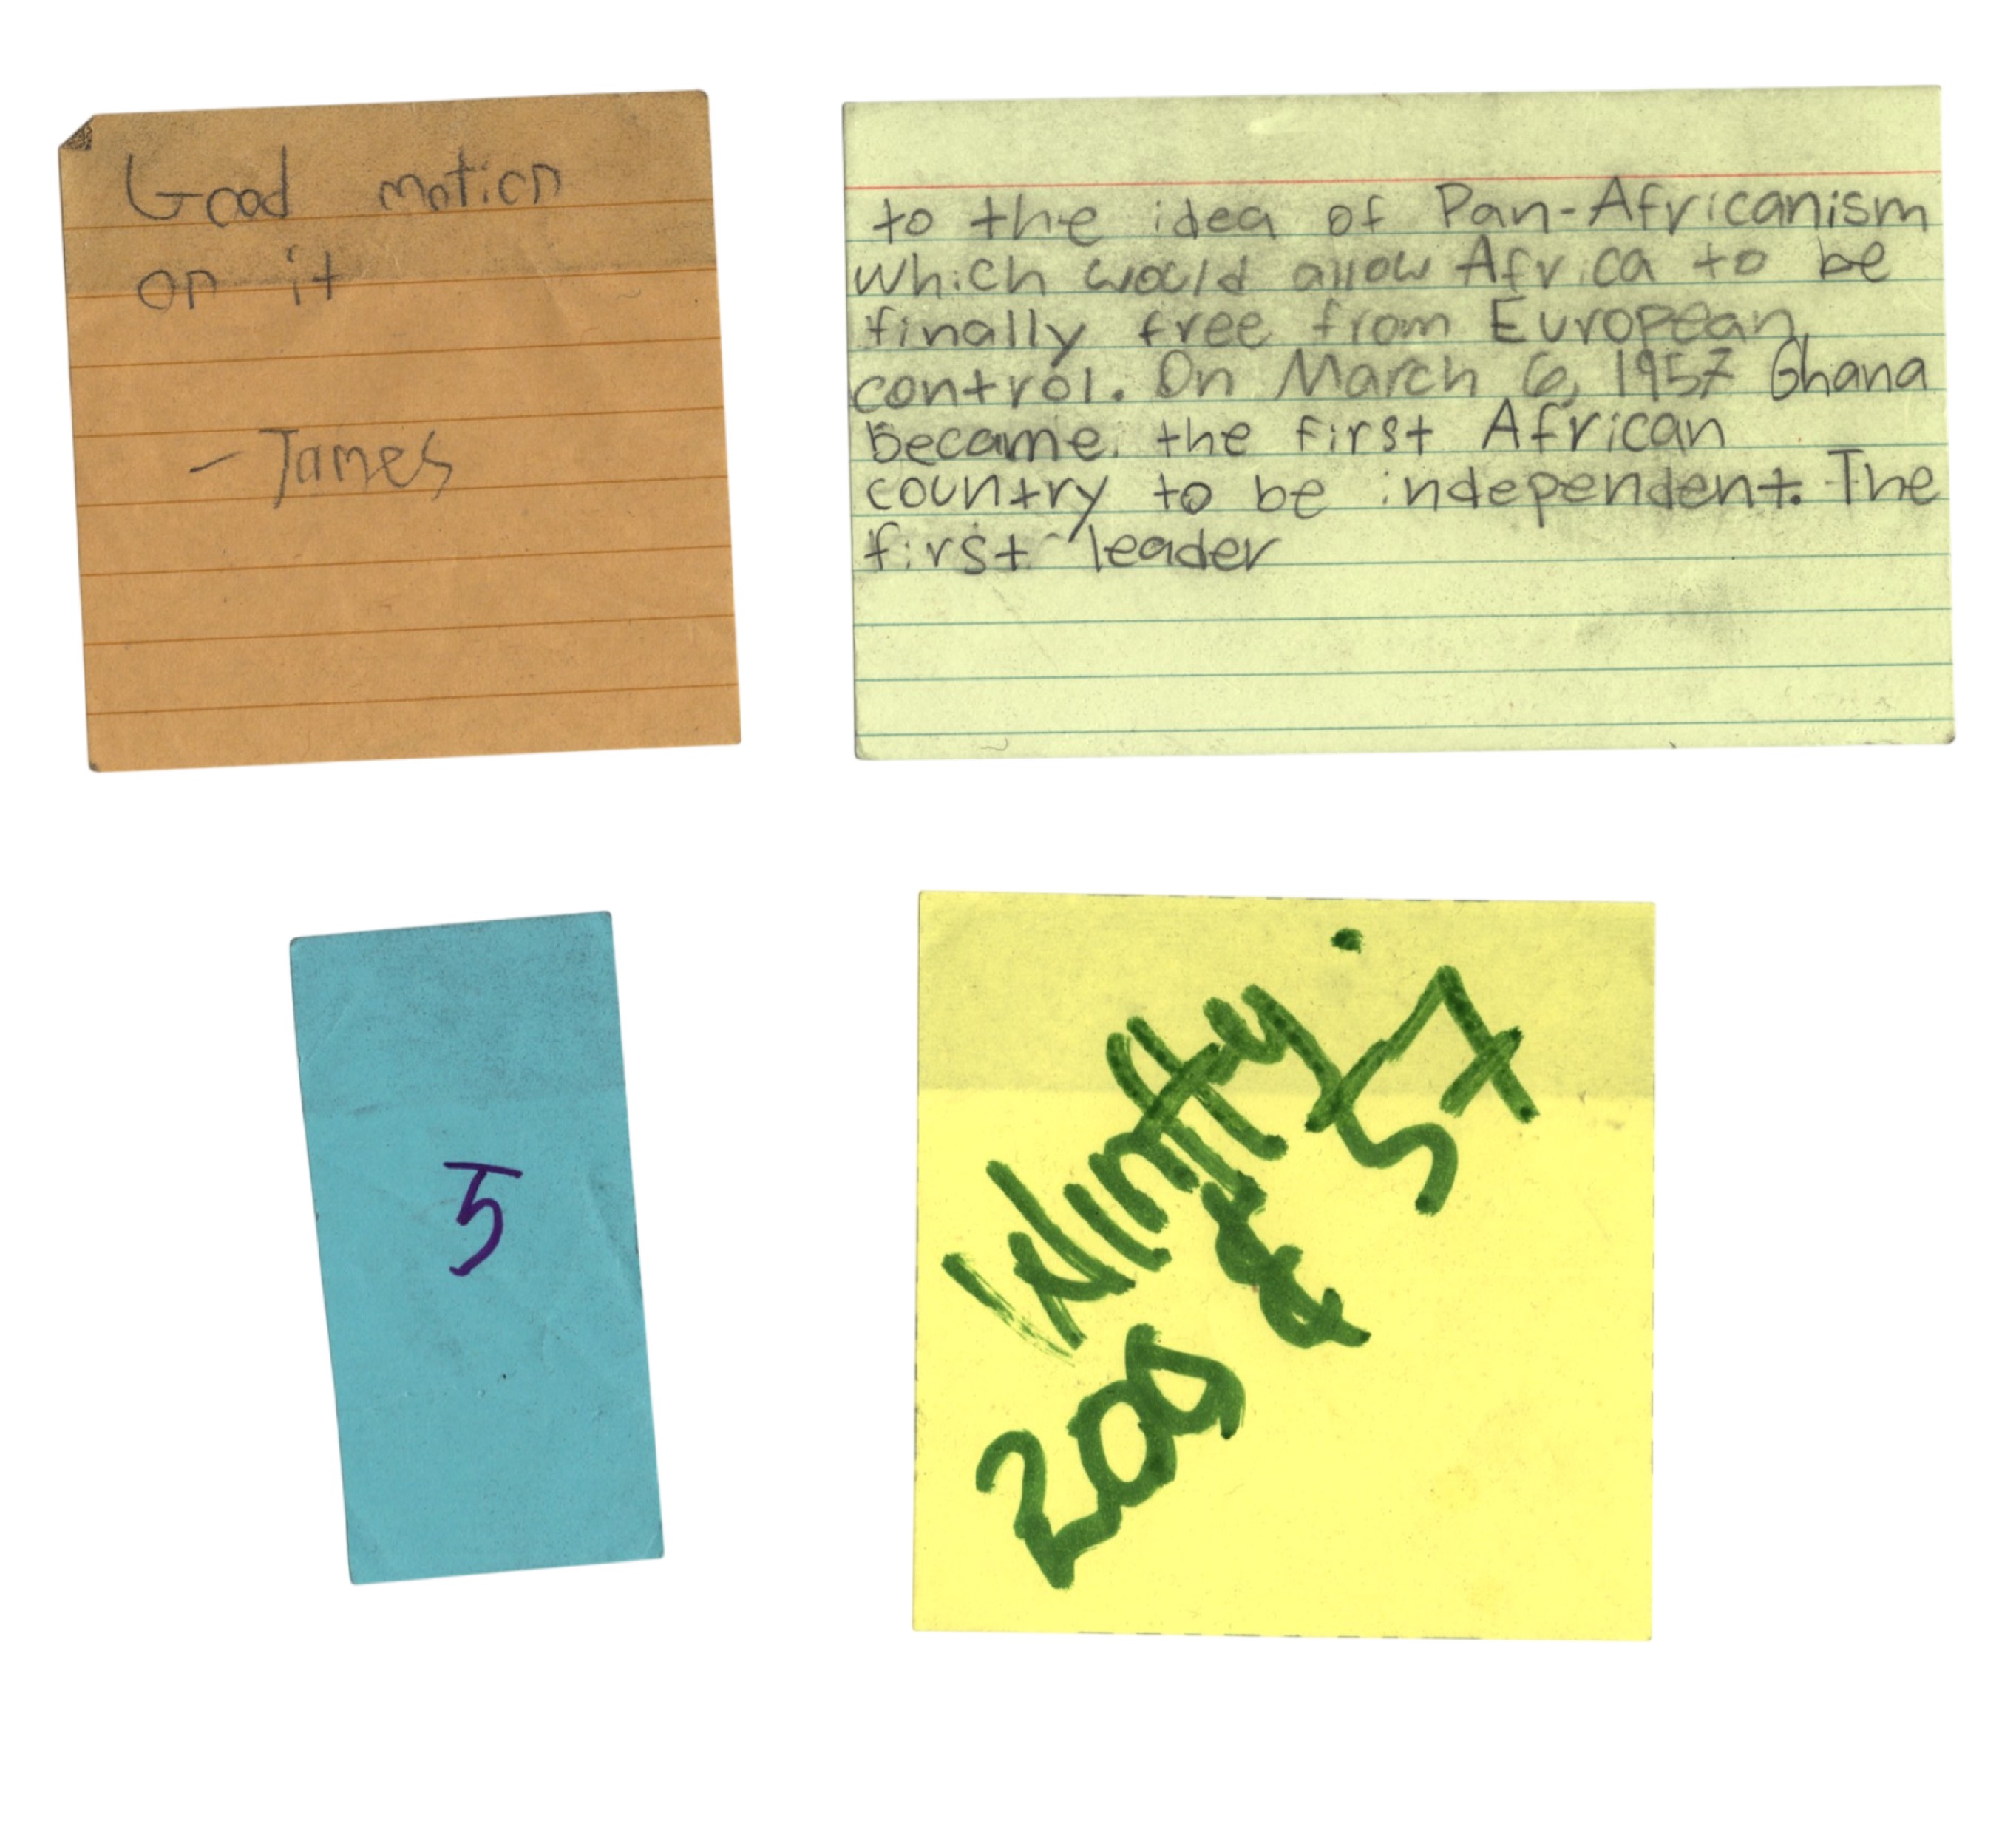 Good motion
on it
- James
to the idea of Pan-Africanism
which would allow Africa to be
finally free from European
control. On March 6, 1957 Ghana
became the first African
country to be independent. The
first leader
5
57